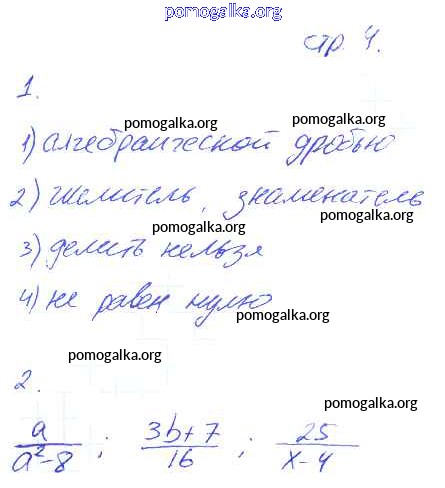 pomogalka.org
стр. 4.
1.
pomogalka.org
1) алгебраической дробью
pomogalka.org
2) числитель, знаменатель
pomogalka.org
pomogalka.org
3) делить нельзя
4) не равен нулю
pomogalka.org
pomogalka.org
2.
pomogalka.org
a/(a²-8) ; (3b+7)/16 ; 25/(x-4)
pomogalka.org